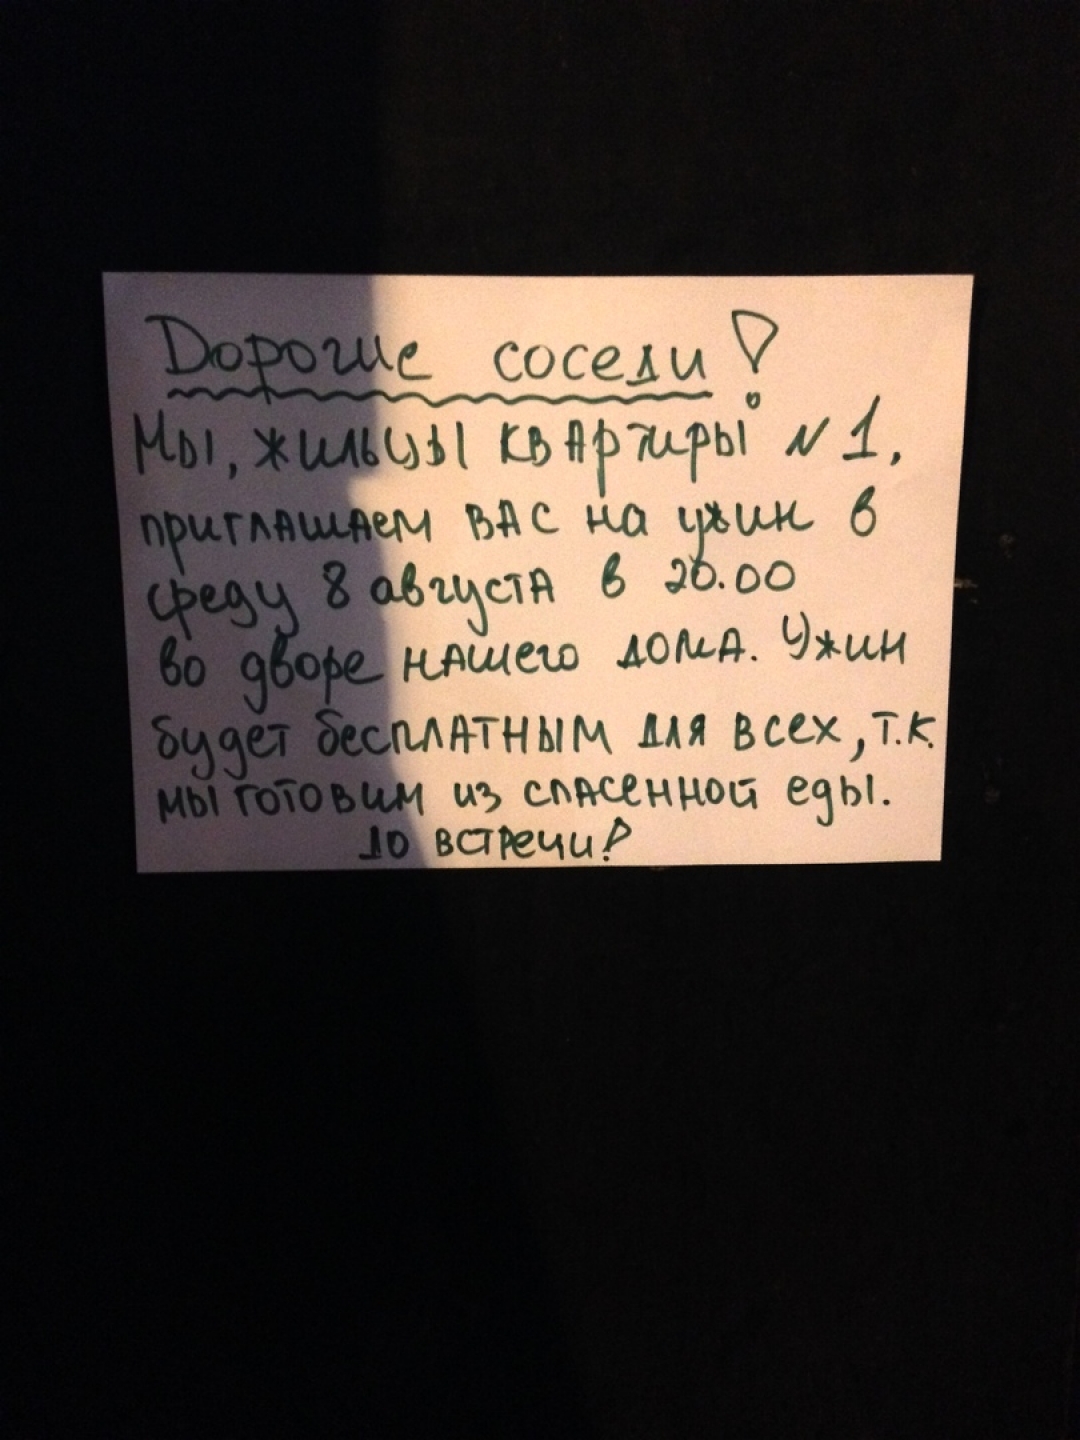 Дорогие соседи!
Мы, жильцы квартиры N 1,
приглашаем вас на ужин в
среду 8 августа в 20.00
во дворе нашего дома. Ужин
будет бесплатным для всех, т.к.
мы готовим из спасенной еды.
До встречи!